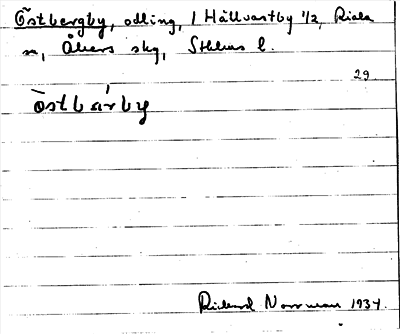 Östbergby, odling, i Hällvastby 1/2, Riala
sn, Åkers skg, Sthlms l.
29
ö̀stbárby
Rickard Norrman 1934.